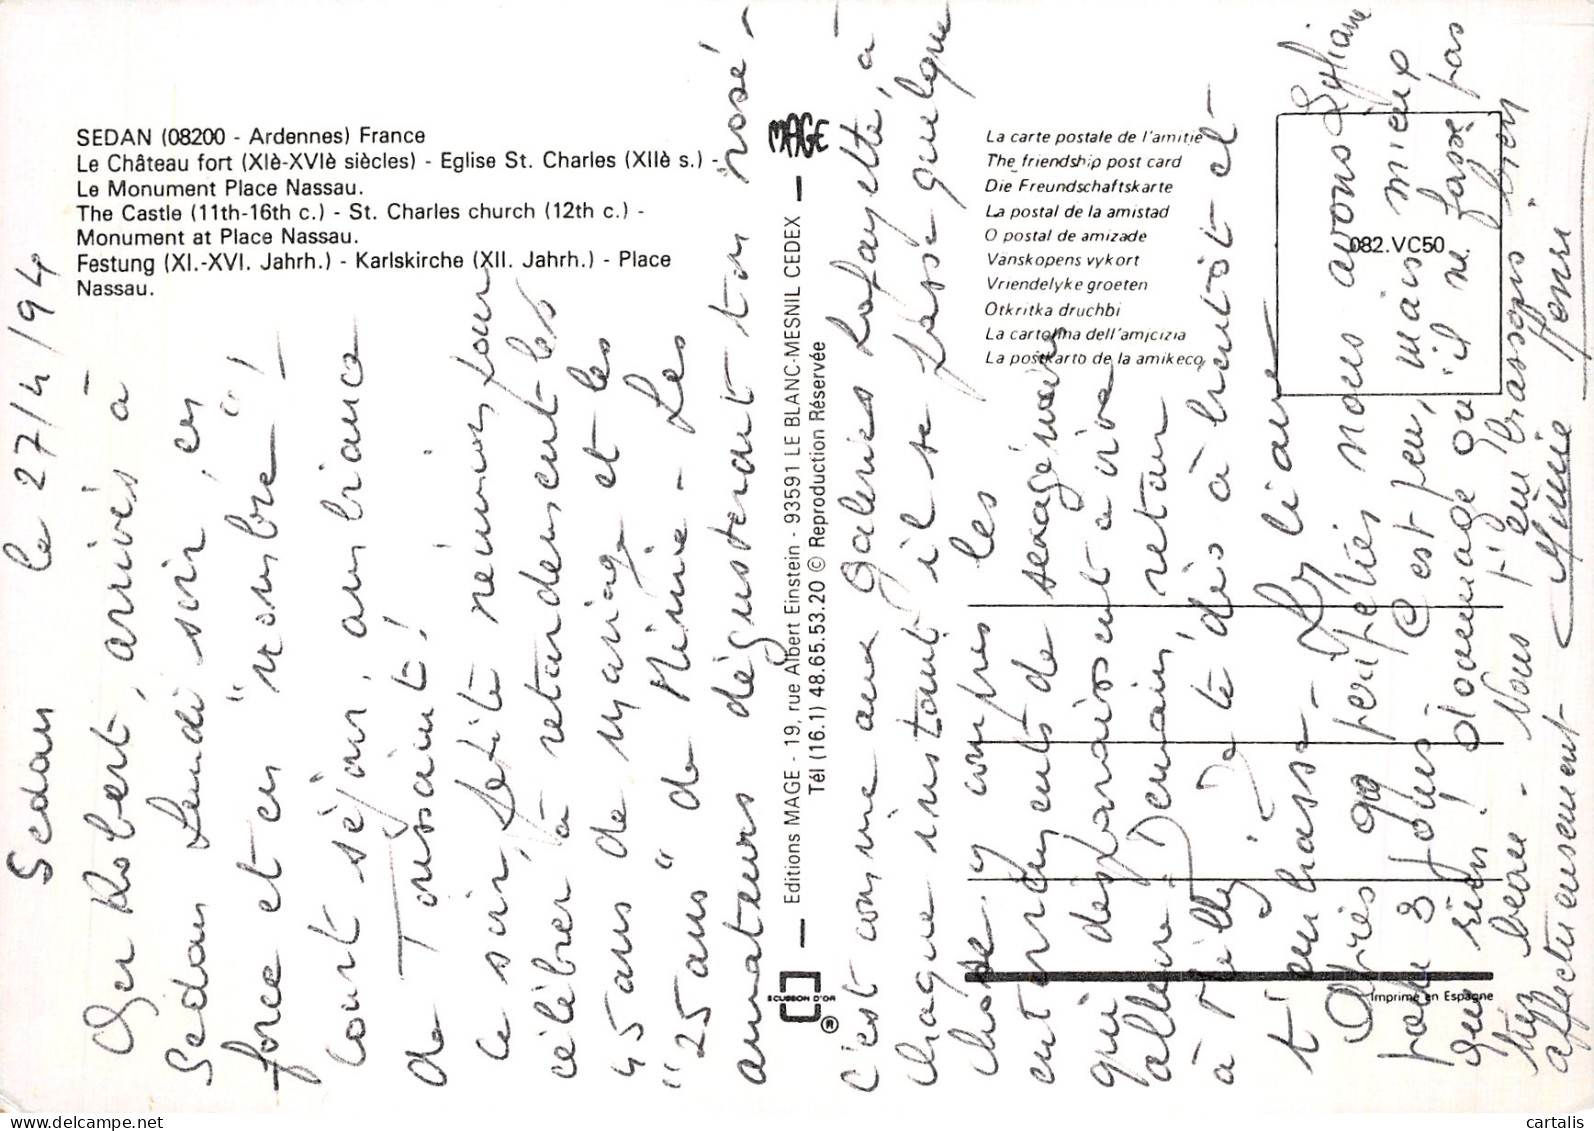 SEDAN (08200 - Ardennes) France
Le Château fort (XIè-XVIè siècles) - Eglise St. Charles (XIIè s.) -
Le Monument Place Nassau.
The Castle (11th-16th c.) - St. Charles church (12th c.) -
Monument at Place Nassau.
Festung (XI.-XVI. Jahrh.) - Karlskirche (XII. Jahrh.) - Place
Nassau.
MAGE
La carte postale de l'amitié
The friendship post card
Die Freundschaftskarte
La postal de la amistad
O postal de amizade
Vanskopens vykort
Vriendelyke groeten
Otkritka druchbi
La cartolina dell'amicizia
La postkarto de la amikeco
082.VC50
Editions MAGE - 19, rue Albert Einstein - 93591 LE BLANC-MESNIL CEDEX
Tél (16.1) 48.65.53.20 © Reproduction Réservée
ECUSSON D'OR
®
Imprimé en Espagne
Sedan le 27/4/94
Cher Robert, arrivés à
Sedan Lundi soir, en
force et en "nombre"!
Court séjour, ambiance
de Toussaint!
Ce soir, petite réunion pour
célébrer à retardement les
45 ans de mariage et les
"25 ans" de Mimie - Les
amateurs dégusteront ton rosé -
C'est comme aux Galeries Lafayette, à
chaque instant il se passe quelque
chose, y compris les
enterrements de sexagénaires
qui disparaissent à rive
allure - Demain, retour
à Neilly. Je te dis à bientôt et -
t'embrasse - Lyliane
Après qq péripéties nous avons Lyliane
pour 3 jours - C'est peu, mais mieux
que rien! Dommage qu'il ne fasse pas
très beau - Nous t'embrassons bien
affectueusement Mimie Henri
cartalis